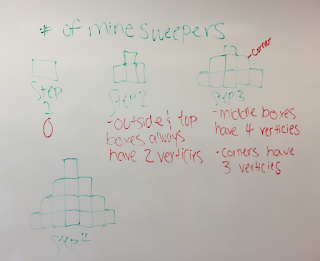 # of mine sweepers
-corner
Step
1
0
Step 2
-outside & top
boxes always
have 2 verticies
Step 3
-middle boxes
have 4 verticies
-corners have
3 verticies
Step 4